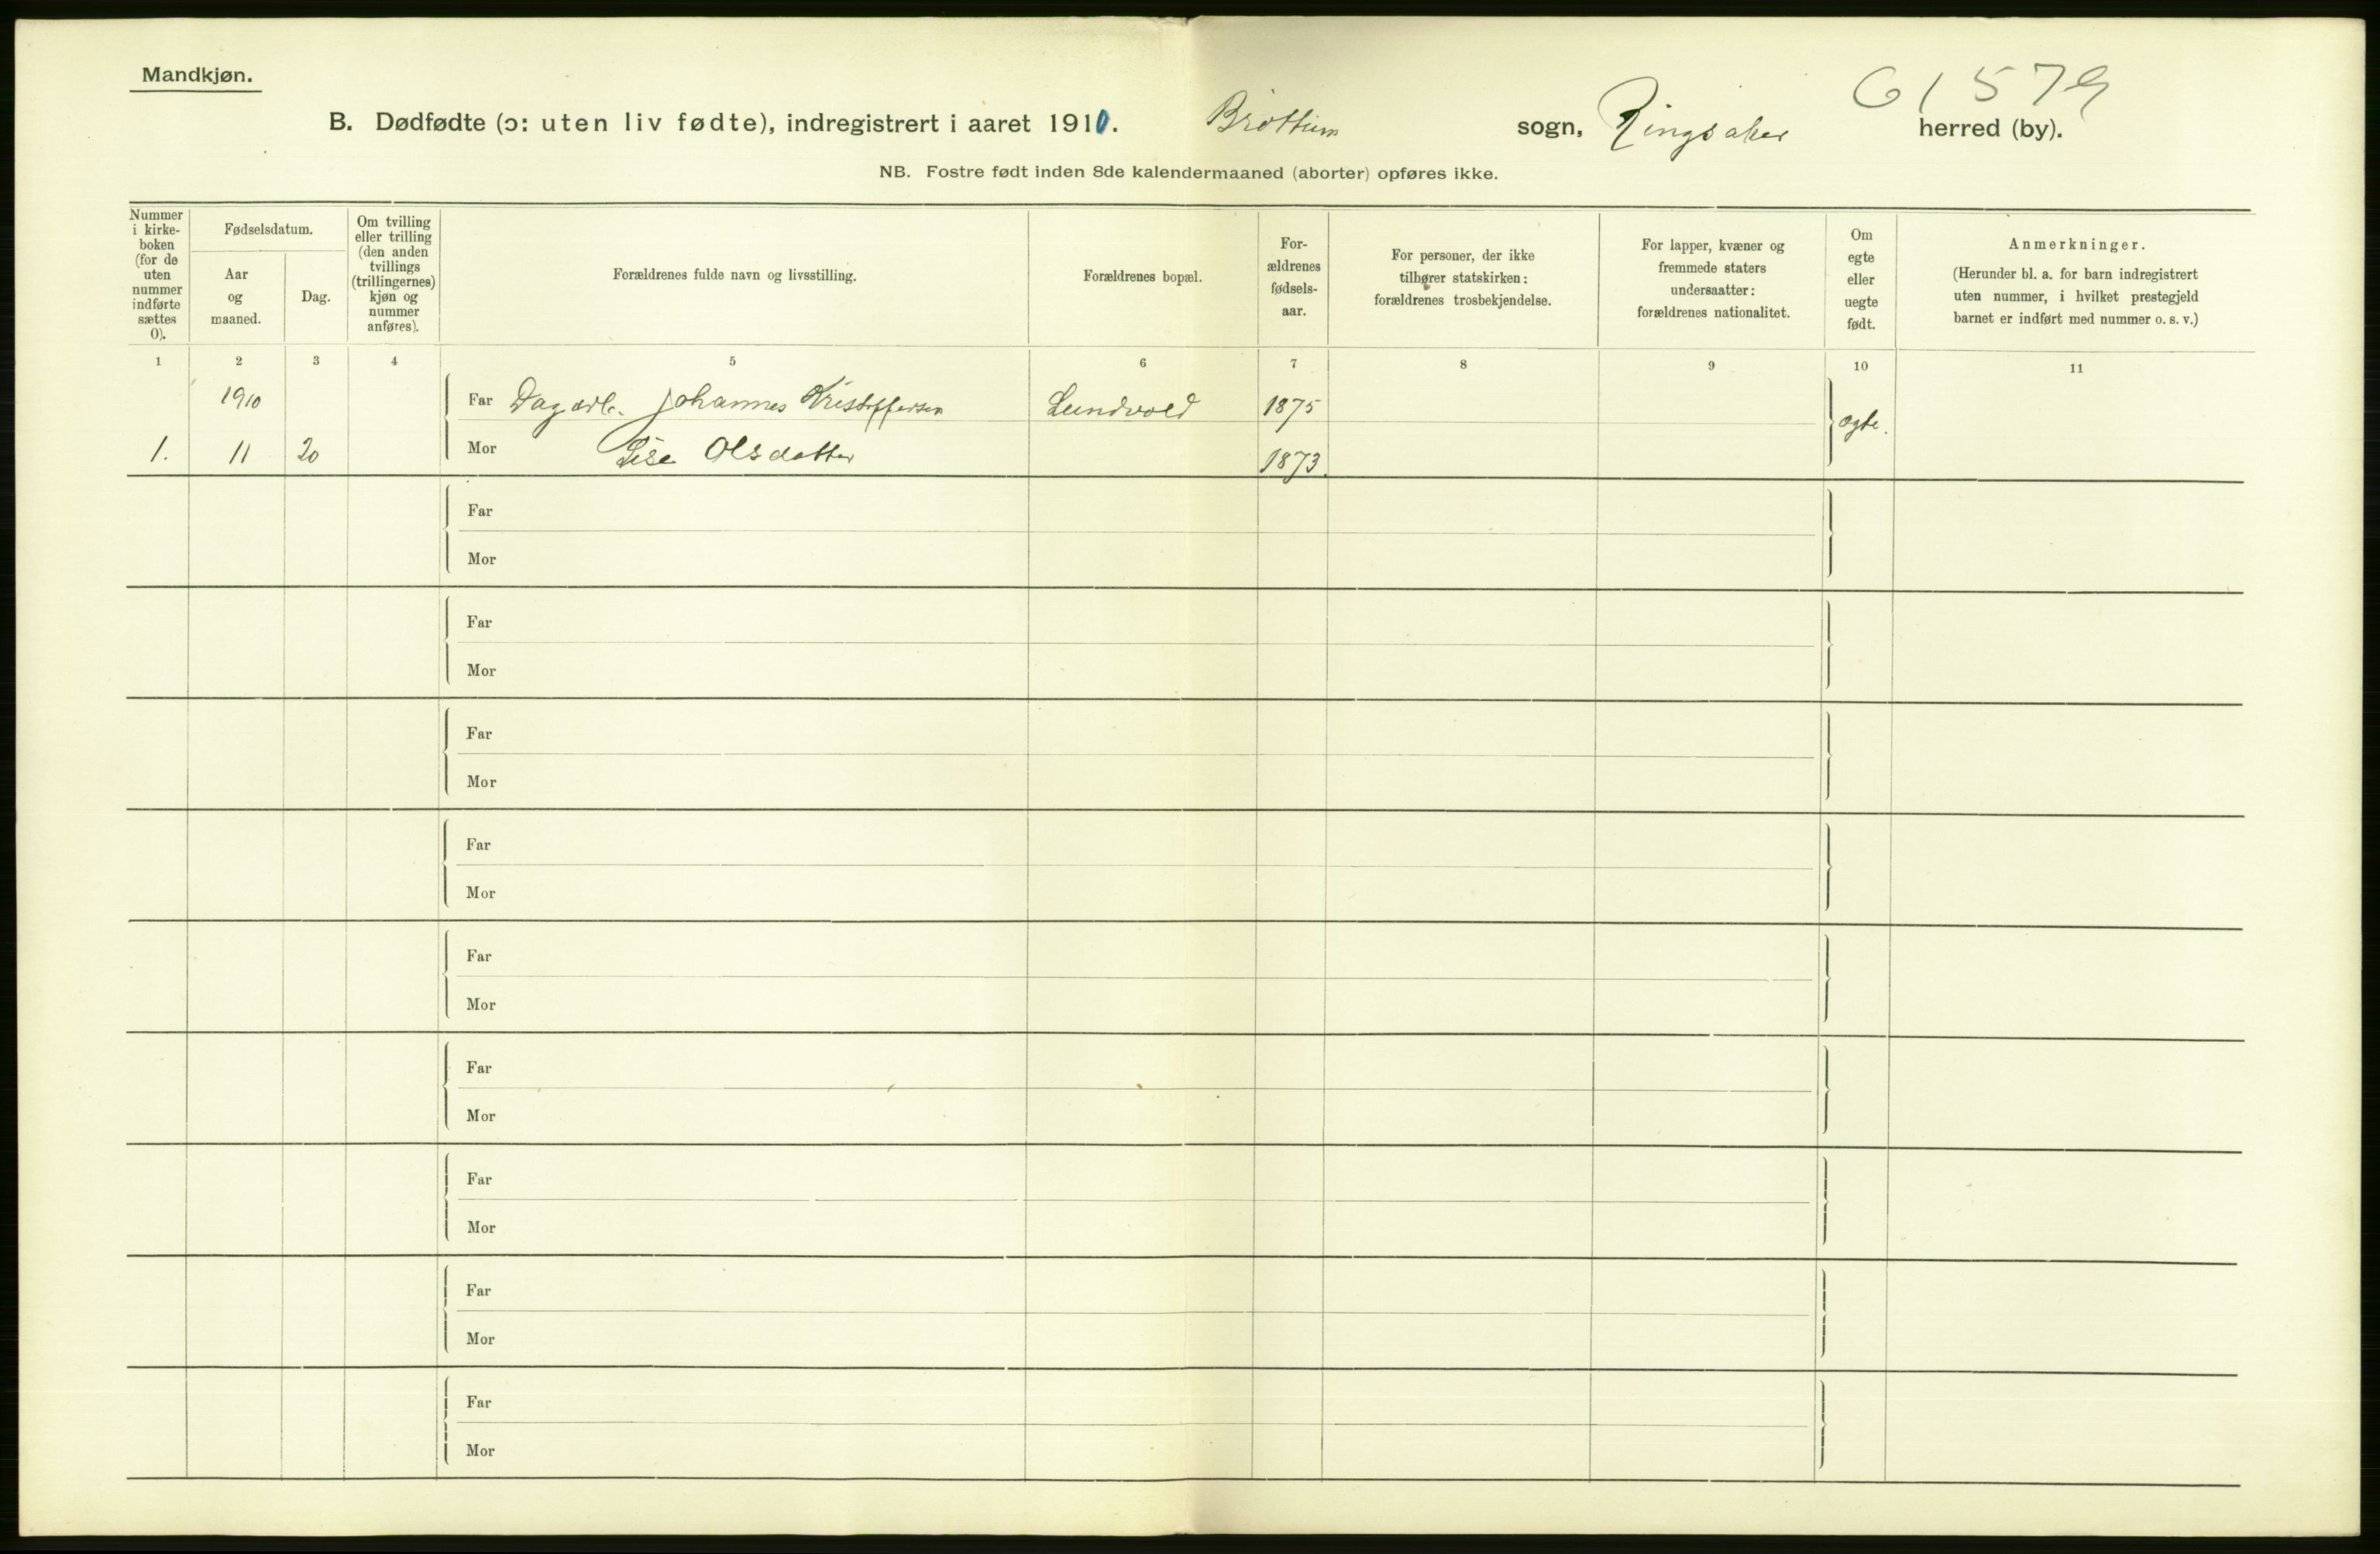 Mandkjøn.
61579
B. Dødfødte (ɔ: uten liv fødte), indregistrert i aaret 1910. Brøttum sogn, Ringsaker herred (by).
NB. Fostre født inden 8de kalendermaaned (aborter) opføres ikke.
Nummer
i kirke-
boken
(for de
uten
nummer
indførte
sættes
0).
Fødselsdatum.
Aar
og
maaned.
Dag.
Om tvilling
eller trilling
(den anden
tvillings
(trillingernes)
kjøn og
nummer
anføres).
Forældrenes fulde navn og livsstilling.
Forældrenes bopæl.
For-
ældrenes
fødsels-
aar.
For personer, der ikke
tilhører statskirken:
forældrenes trosbekjendelse.
For lapper, kvæner og
fremmede staters
undersaatter:
forældrenes nationalitet.
Om
egte
eller
uegte
født.
Anmerkninger.
(Herunder bl. a. for barn indregistrert
uten nummer, i hvilket prestegjeld
barnet er indført med nummer o. s. v.)
1 2 3 4 5 6 7 8 9 10 11
1910 Far Dagarb. Johannes Kristoffersen Lundvold 1875 ægte.
1. 11 20 Mor Lise Olsdatter 1873.
Far
Mor
Far
Mor
Far
Mor
Far
Mor
Far
Mor
Far
Mor
Far
Mor
Far
Mor
Far
Mor